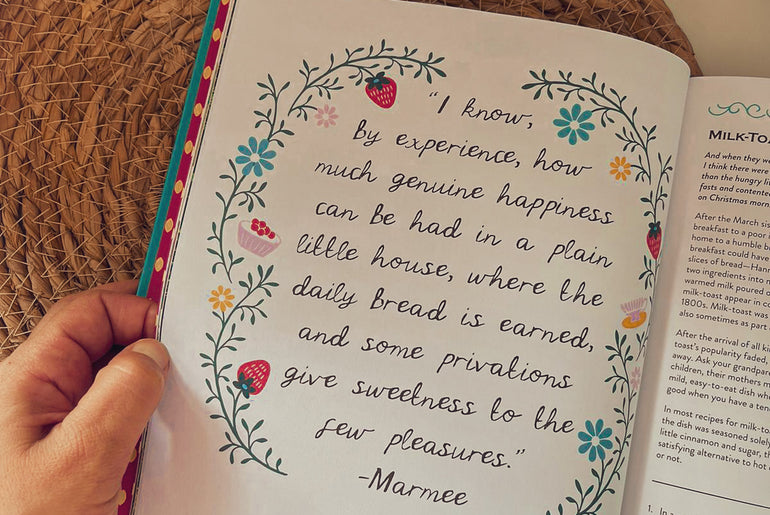 "I know,
By experience, how
much genuine happiness
can be had in a plain
little house, where the
daily bread is earned,
and some privations
give sweetness to the
few pleasures."
-Marmee
MILK-TOA
And when they w
I think there were
than the hungry li
fasts and contente
on Christmas morn
After the March sis
breakfast to a poor
home to a humble b
slices of bread—Hann
two ingredients into
warmed milk poured o
milk-toast appear in co
1800s. Milk-toast was
also sometimes as part
After the arrival of all ki
toast's popularity faded,
away. Ask your grandpare
children, their mothers m
mild, easy-to-eat dish whe
good when you have a ten
In most recipes for milk-to
the dish was seasoned solely
little cinnamon and sugar, th
satisfying alternative to hot
or not.
1. In a